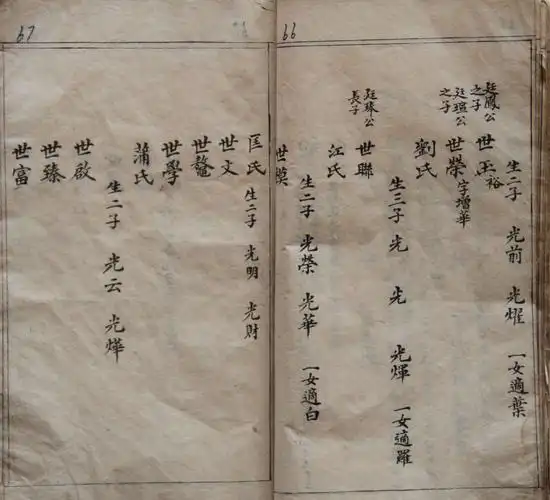 66
生二子 光前 光耀 一女適葉
廷鳳公之子 世玉裕
廷瑄公之子 世榮 字增華
劉氏
生三子 光 光 光煇 一女適羅
廷琫公長子 世聯
江氏
生二子 光榮 光華 一女適白
世模
67
匡氏 生二子 光明 光財
世文
世鰲
世學
蒲氏
生二子 光云 光燁
世啟
世臻
世富